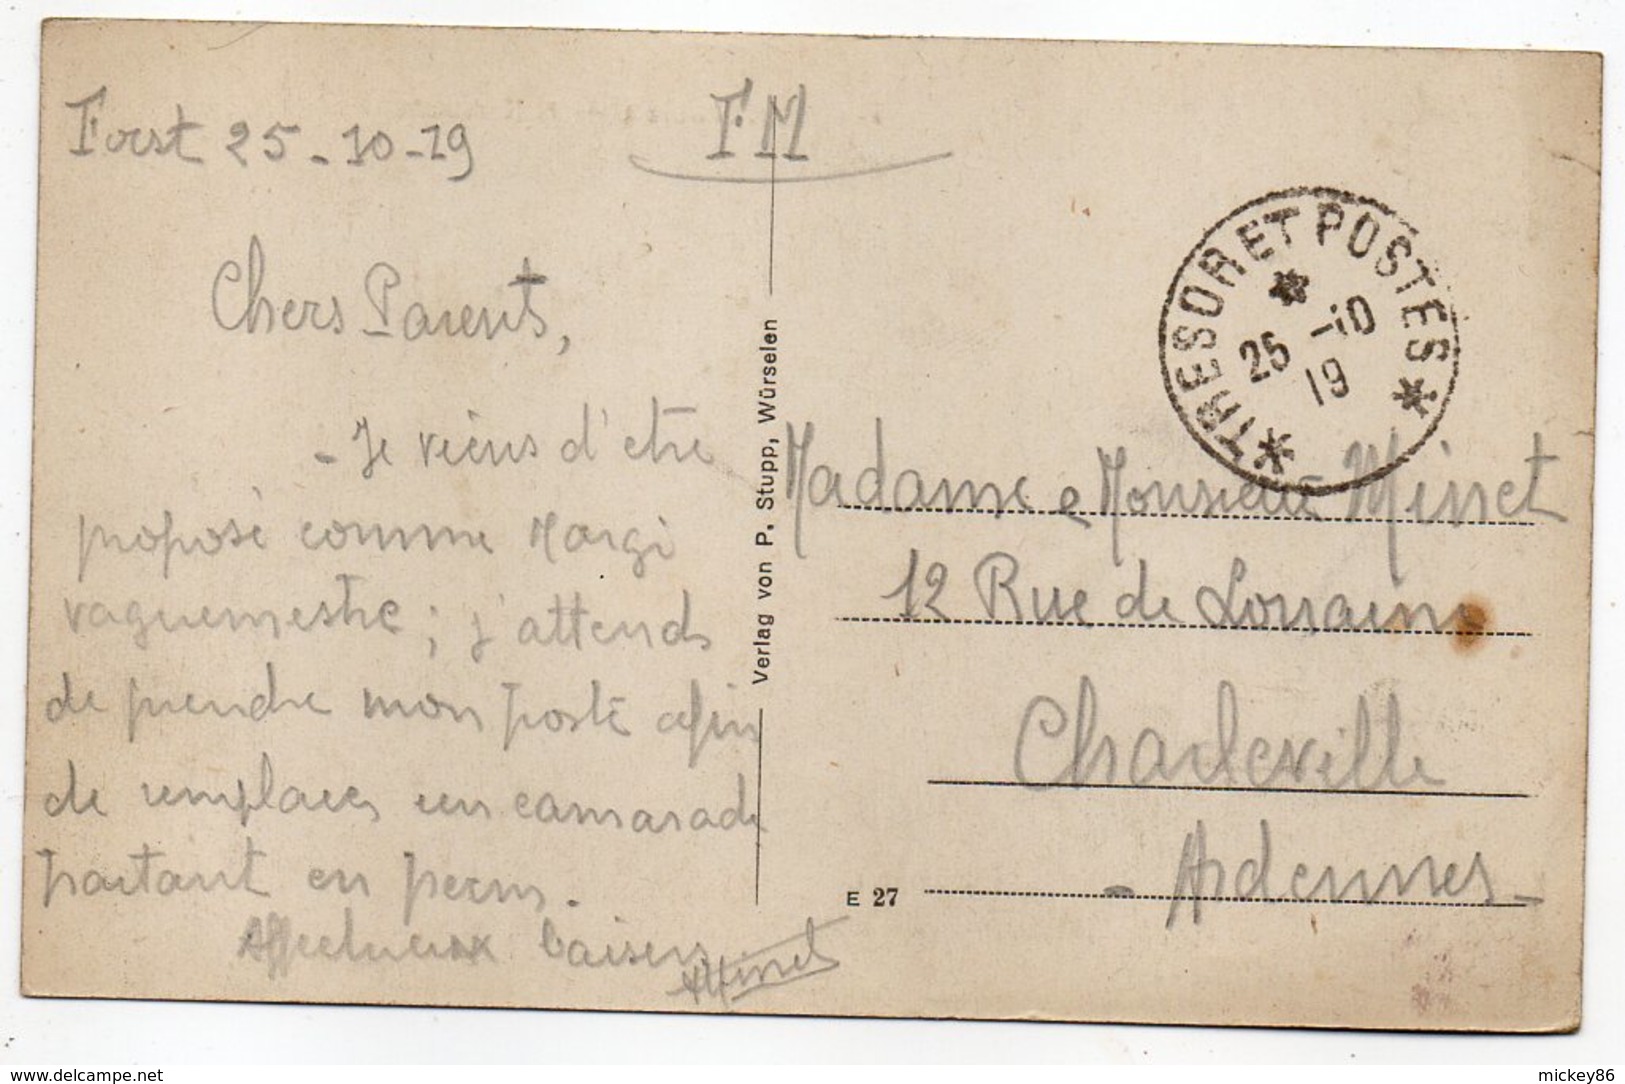 Forst 25-10-19
FM
Chers Parents,
- Je viens d'etre
proposé comme Margi
vaguemestre ; j'attends
de prendre mon poste afin
de remplacer un camarade
partant en perm.
Affectueux baisers
AMinet
Verlag von P. Stupp, Würselen
TRESOR ET POSTES
25 -10
19
Madame e Monsieur Minet
12 Rue de Lorraine
Charleville
- Ardennes -
E 27
www.delcampe.net
mickey86